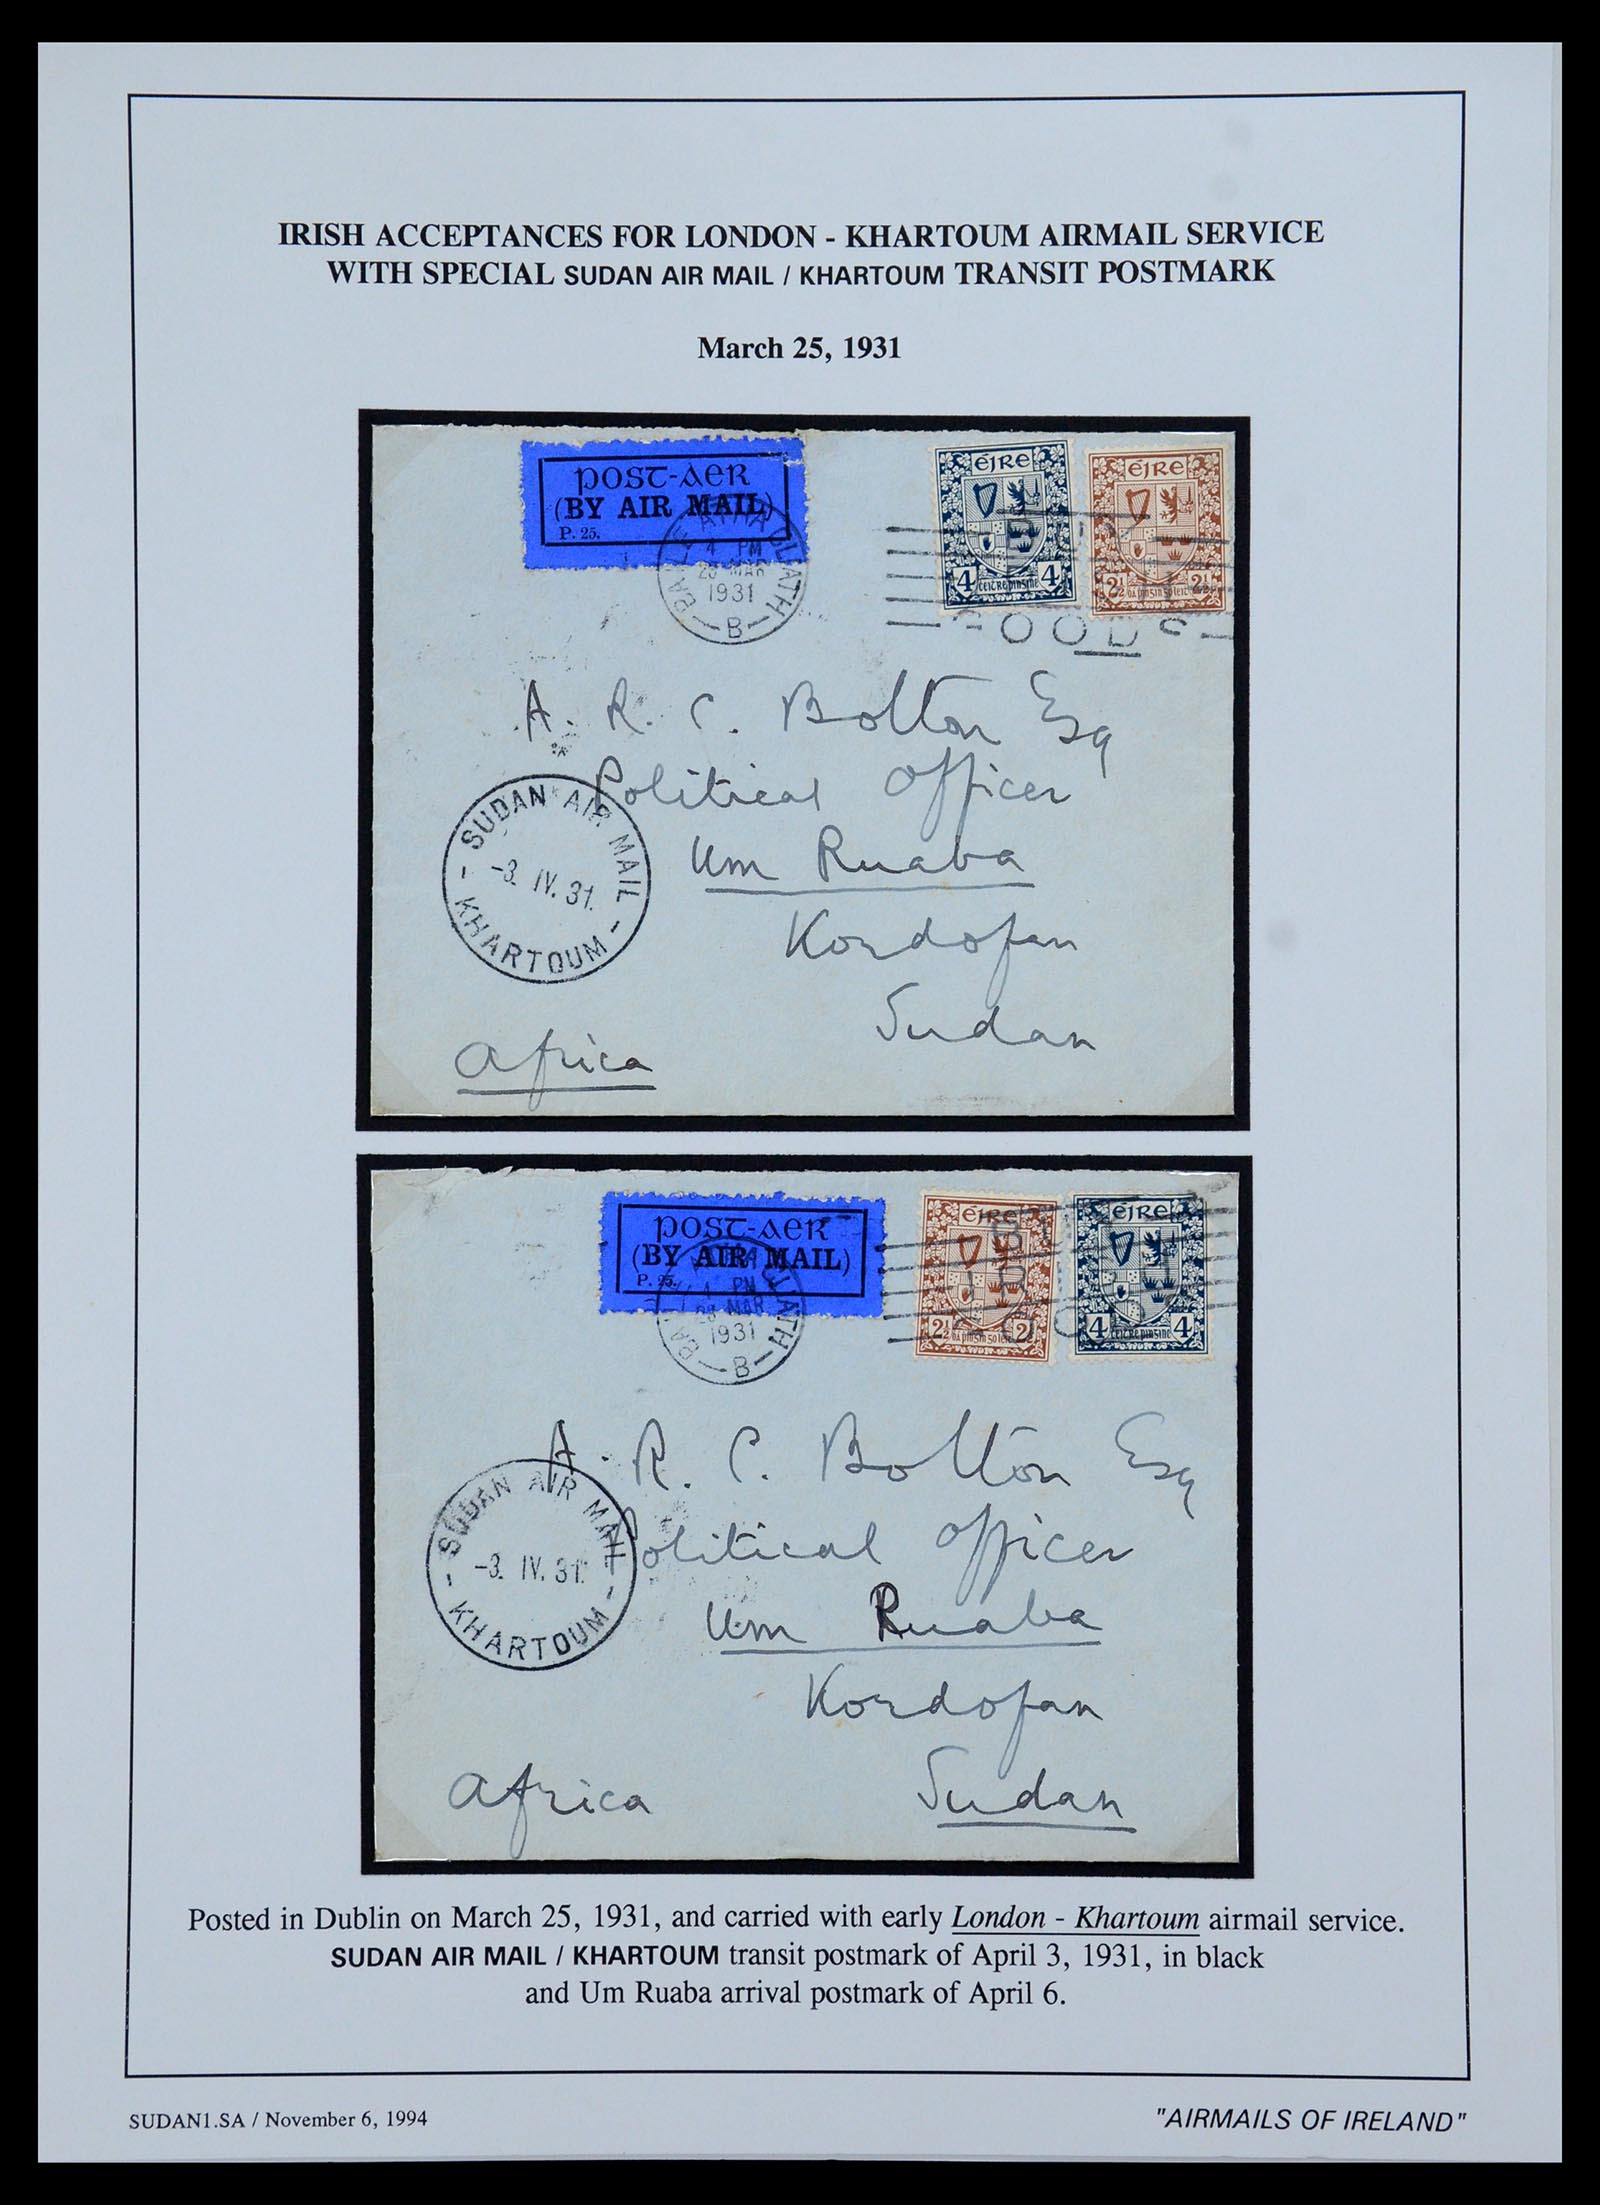 IRISH ACCEPTANCES FOR LONDON - KHARTOUM AIRMAIL SERVICE
WITH SPECIAL SUDAN AIR MAIL / KHARTOUM TRANSIT POSTMARK
March 25, 1931
POST-AER
(BY AIR MAIL)
P. 25.
BAILE ATHA CLIATH
4 PM
MAR
1931
B
ÉIRE
4 4
ceitre pinsine
ÉIRE
2½ 2½
dá pinsin so leit
GOODS
A. R. C. Bolton Esq
Political Officer
Um Ruaba
Kordofan
Sudan
Africa
SUDAN AIR MAIL
-3. IV. 31.
KHARTOUM
POST-AER
(BY AIR MAIL)
P. 25.
4 PM
MAR
1931
B
ÉIRE
2½ 2½
dá pinsin so leit
ÉIRE
4 4
ceitre pinsine
A. R. C. Bolton Esq
Political Officer
Um Ruaba
Kordofan
Sudan
Africa
SUDAN AIR MAIL
-3. IV. 31.
KHARTOUM
Posted in Dublin on March 25, 1931, and carried with early London - Khartoum airmail service.
SUDAN AIR MAIL / KHARTOUM transit postmark of April 3, 1931, in black
and Um Ruaba arrival postmark of April 6.
SUDAN1.SA / November 6, 1994
"AIRMAILS OF IRELAND"